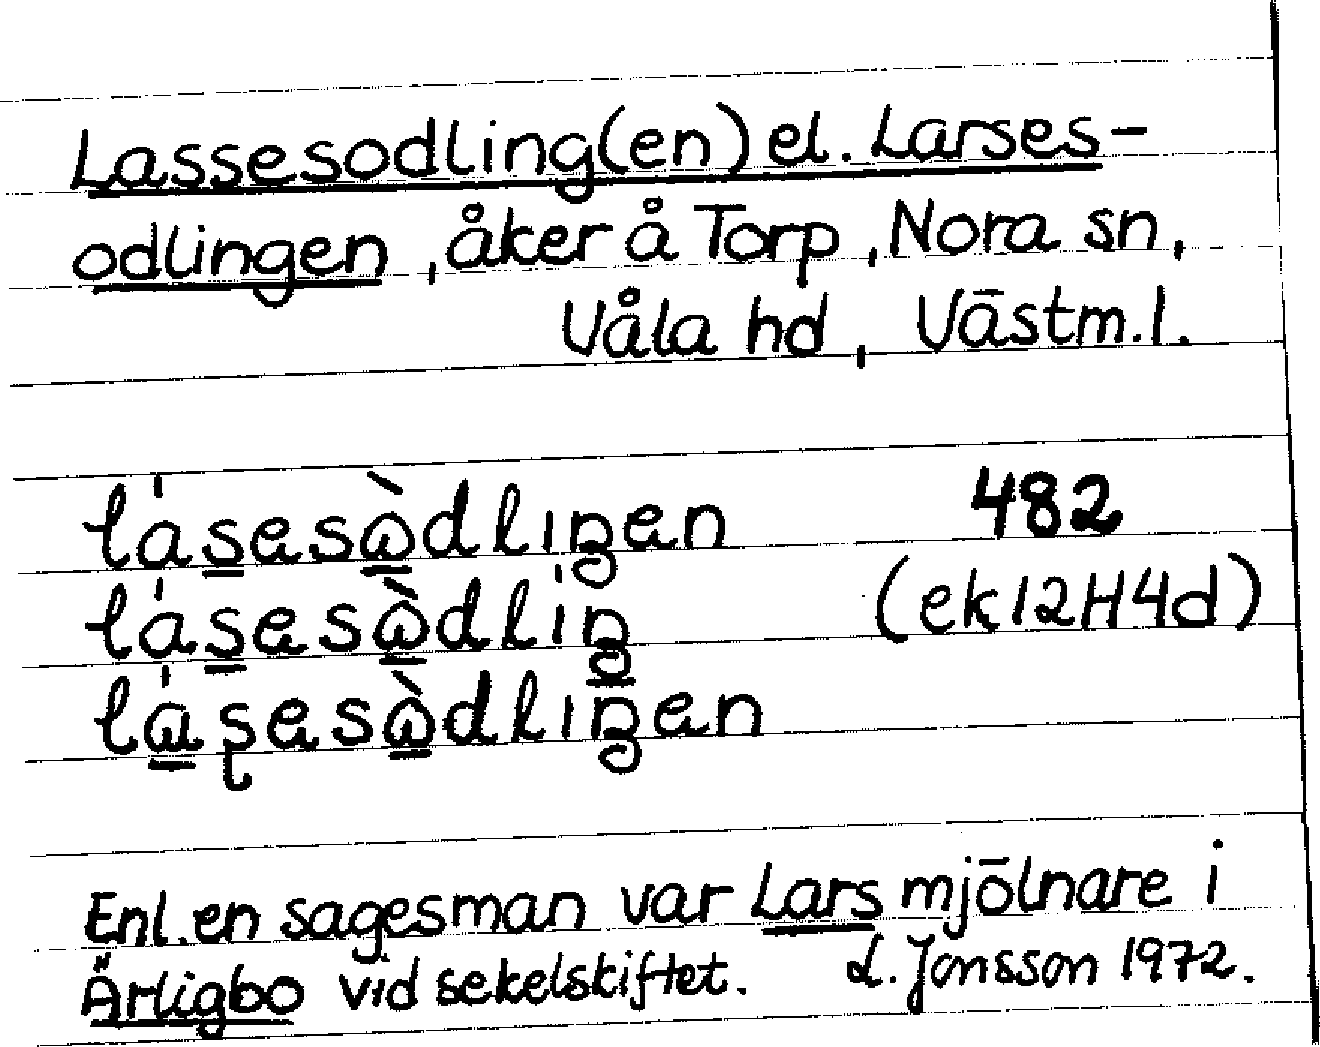 Lassesodling(en) el. Larses-
odlingen, åker å Torp, Nora sn,
Våla hd, Västm.l.
lásesòdliŋen 482
lásesòdliŋ (ek 12H4d)
láʂesòdliŋen
Enl. en sagesman var Lars mjölnare i
Ärligbo vid sekelskiftet. L. Jonsson 1972.